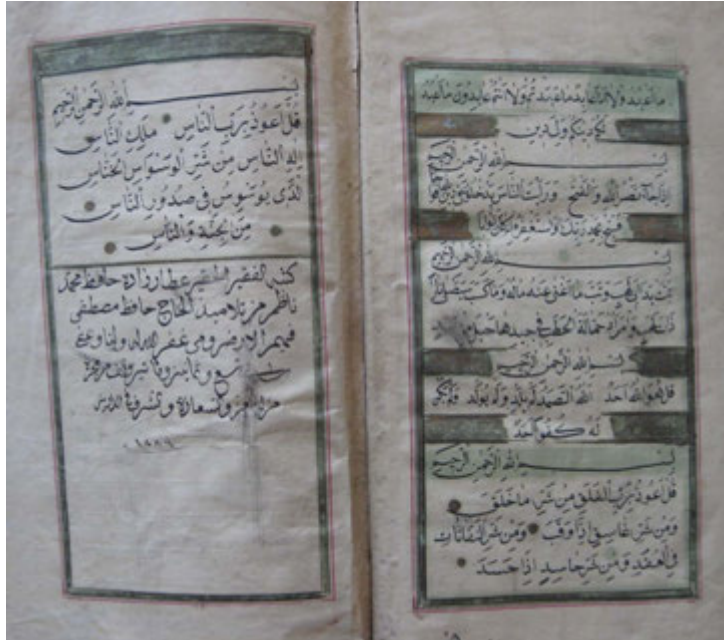 ما أعبد ولا أنا عابد ما عبدتم ولا أنتم عابدون ما أعبد
لكم دينكم ولي دين
بسم الله الرحمن الرحيم
إذا جاء نصر الله والفتح ورأيت الناس يدخلون في دين
فسبح بحمد ربك واستغفره إنه كان توابا
بسم الله الرحمن الرحيم
تبت يدا أبي لهب وتب ما أغنى عنه ماله وما كسب سيصلى نارا
ذات لهب وامرأته حمالة الحطب في جيدها حبل
بسم الله الرحمن الرحيم
قل هو الله أحد الله الصمد لم يلد ولم يولد ولم يكن
له كفوا أحد
بسم الله الرحمن الرحيم
قل أعوذ برب الفلق من شر ما خلق
ومن شر غاسق إذا وقب ومن شر النفاثات
في العقد ومن شر حاسد إذا حسد
بسم الله الرحمن الرحيم
قل أعوذ برب الناس ملك الناس
إله الناس من شر الوسواس الخناس
الذي يوسوس في صدور الناس
من الجنة والناس
كتبه الفقير الحقير عطار زاده حافظ محمد
ناظم من تلاميذ الحاج حافظ مصطفى
فهيم الارضرومي غفر الله
تسع وثمانين ومأتين والف من
من له العز والسعادة